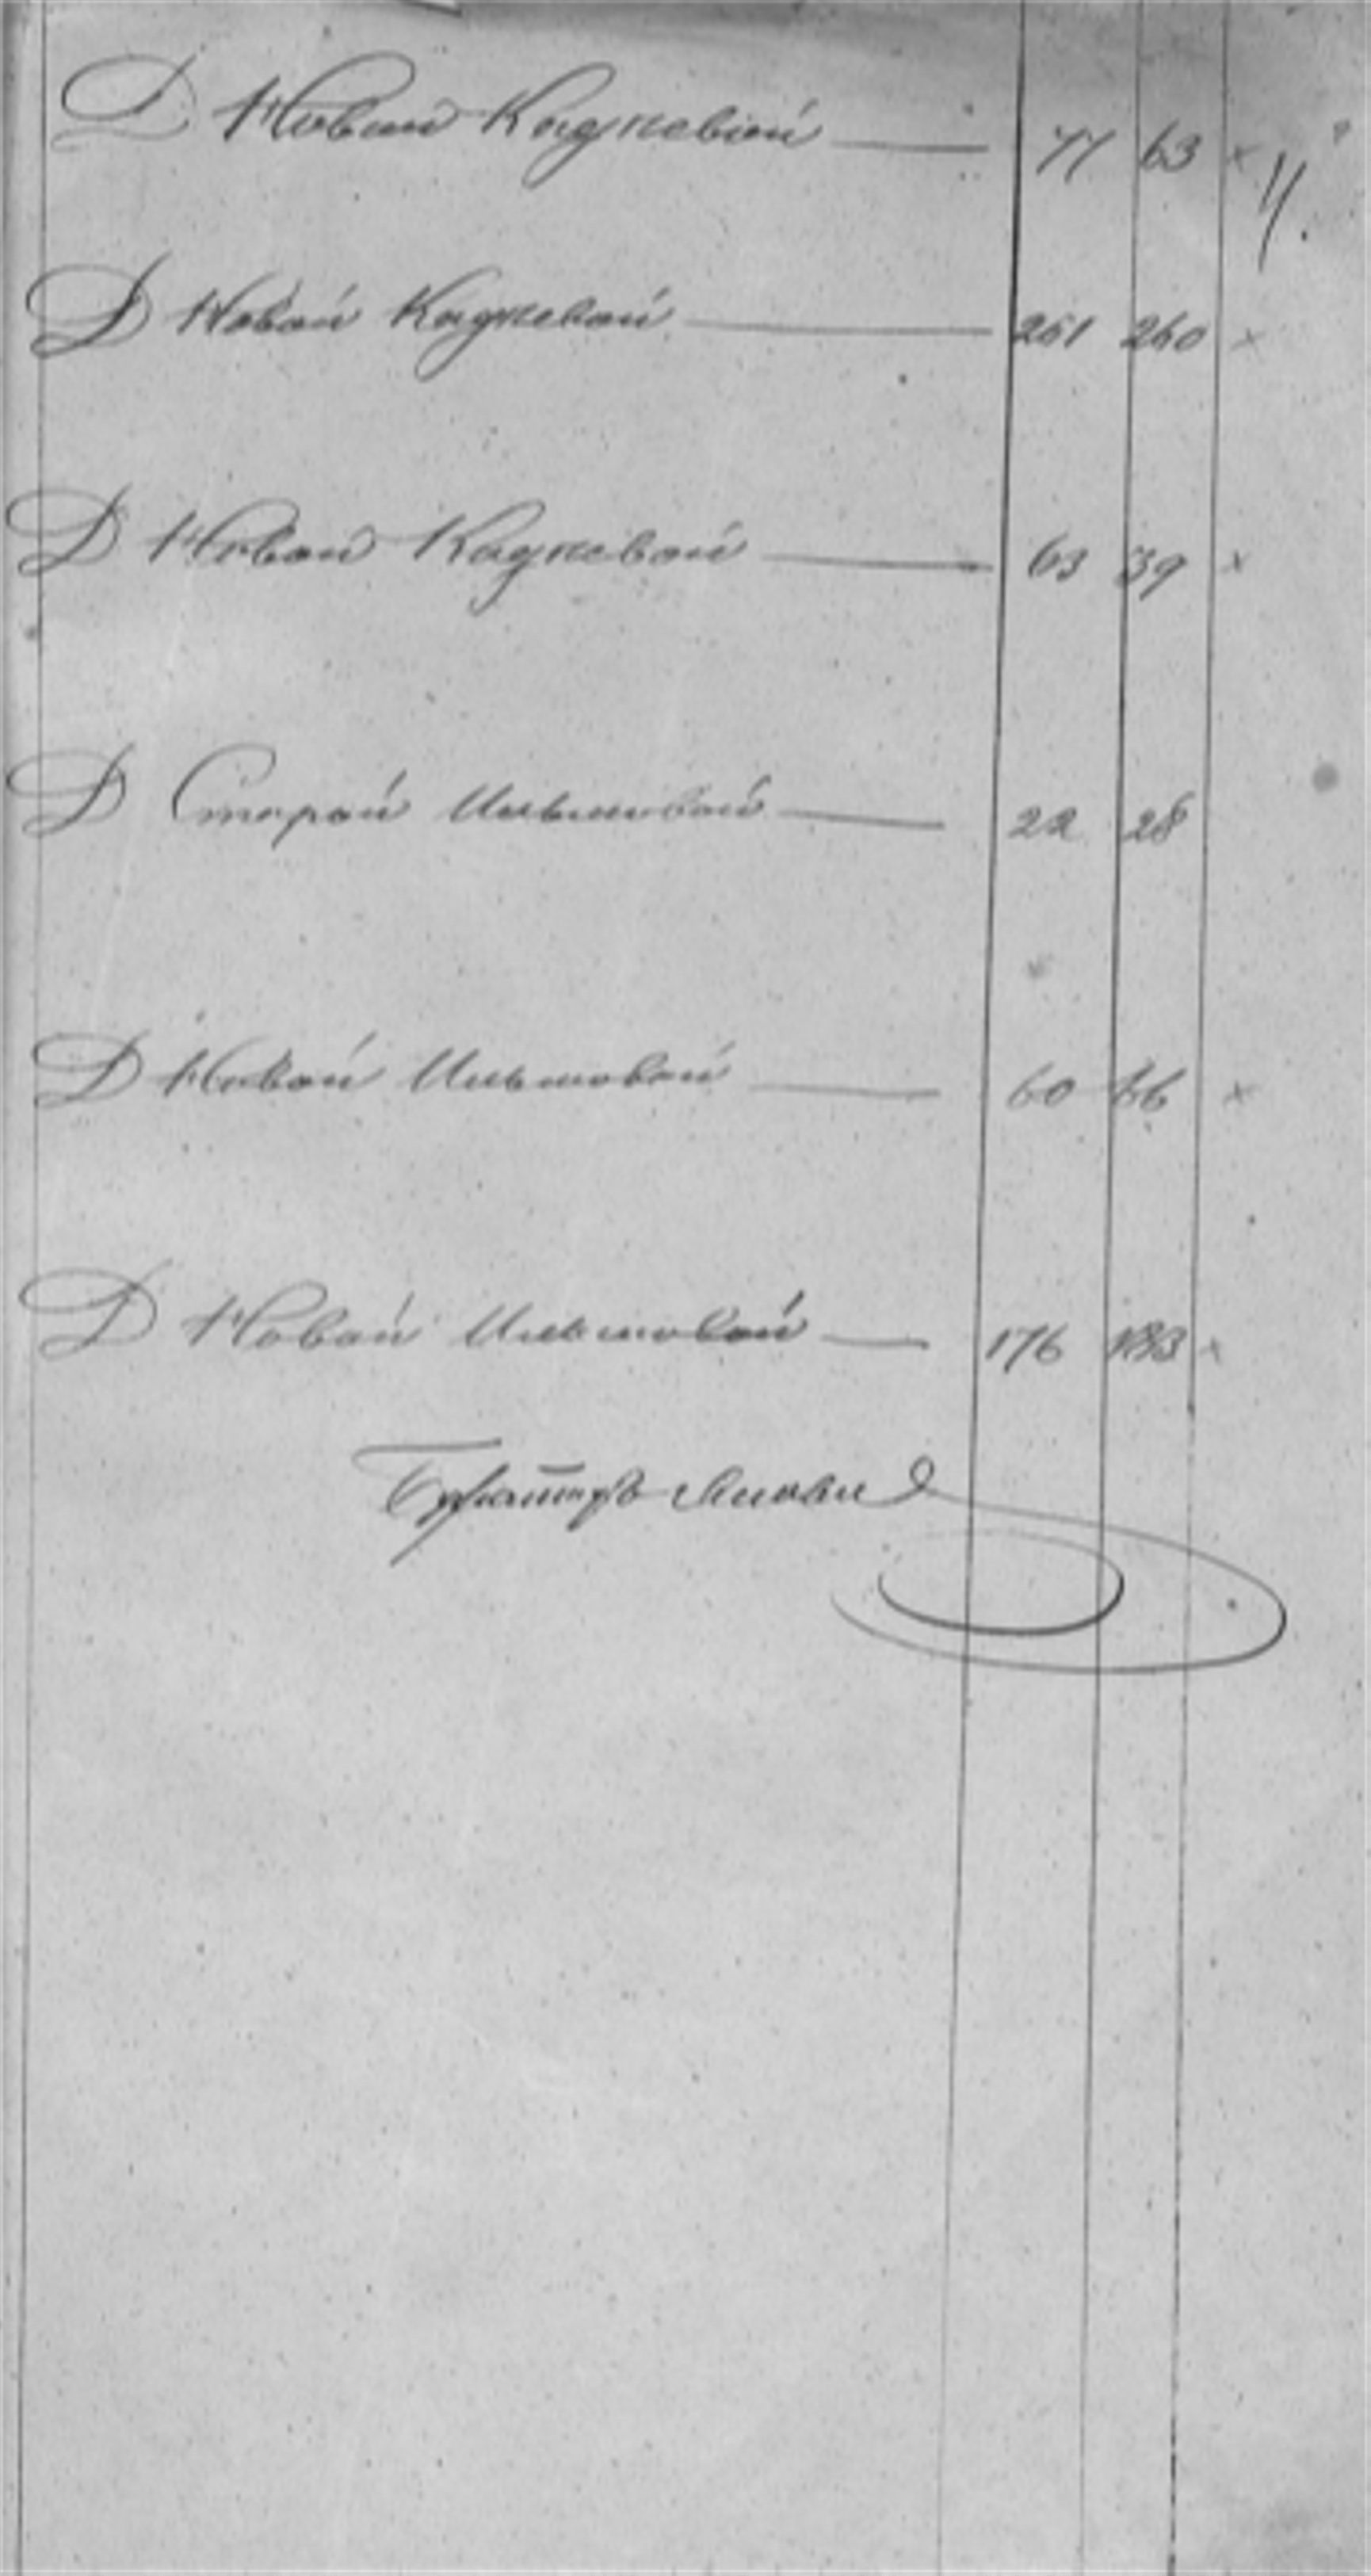 Д Новой Кадкевой — 77 63 ×
Д Новой Кадкевой — 261 260 ×
Д Новой Кадкевой — 63 39 ×
Д Старой Ильмовой — 22 28
Д Новой Ильмовой — 60 66 ×
Д Новой Ильмовой — 176 183 ×